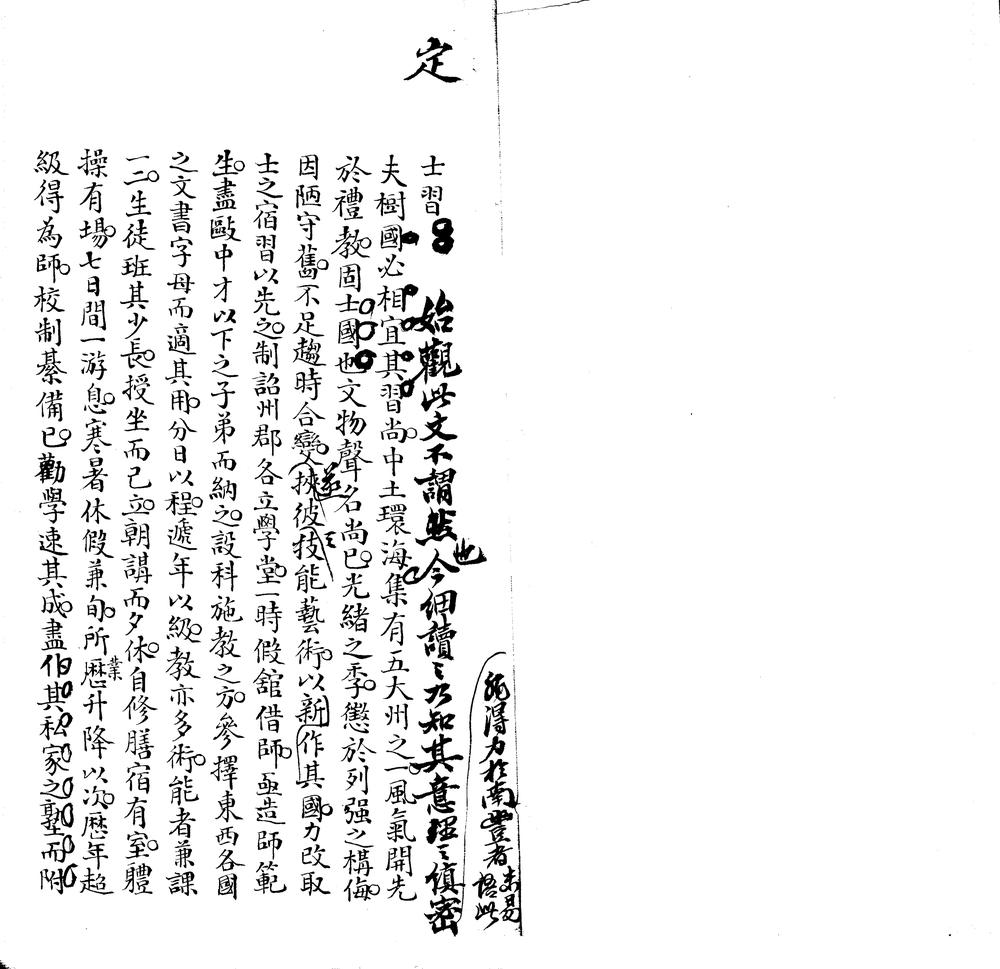 定
非得力於南豐者未易
悟此
士習
始觀此文不謂然也今細讀之乃知其意理之縝密
夫樹國必相宜其習尚中土環海集有五大州之一風氣開先
於禮教固士國也文物聲名尚已光緒之季懲於列强之構侮
因陋守舊不足趨時合變遂挾彼之技能藝術以新作其國力改取
士之宿習以先之制詔州郡各立學堂一時假舘借師亟造師範
生盡敺中才以下之子弟而納之設科施教之方參擇東西各國
之文書字母而適其用分日以程遞年以級教亦多術能者兼課
一二生徒班其少長授坐而已立朝講而夕休自修膳宿有室體
操有場七日間一游息寒暑休假兼旬所歷業升降以次歷年超
級得為師校制綦備已勸學速其成盡伯其私家之塾而附